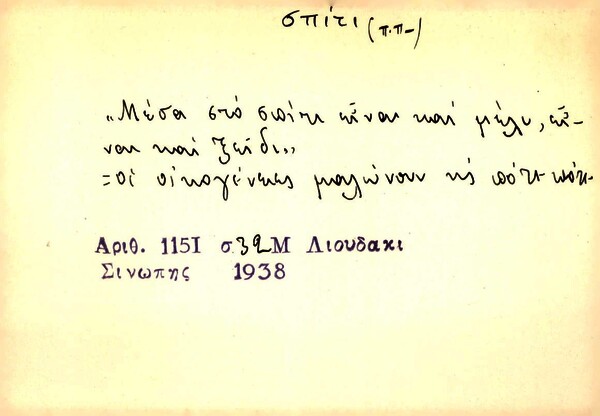 σπίτι (π.π-)
„Μέσα στό σπίτι εἶναι καί μέλι, εἶ-
ναι καί ξείδι„
=οἱ οἰκογένειες μαλώνουν κι̂ς πότε πότε.
Αριθ. 1151 σ. 32 Μ Λιουδακι
Σινωπης 1938